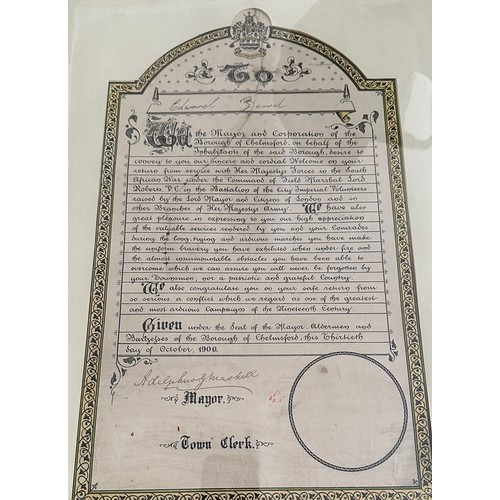 To
Edward
We the Mayor and Corporation of the
Borough of Chelmsford, on behalf of the
Inhabitants of the said Borough, desire to
convey to you our sincere and cordial Welcome on your
return from service with Her Majestys Forces in the South
African War under the Command of Field Marshal Lord
Roberts, V.C. in the Battalion of the City Imperial Volunteers
raised by the Lord Mayor and Citizens of London and in
other Branches of Her Majestys Army. We have also
great pleasure in expressing to you our high appreciation
of the valuable services rendered by you and your Comrades
during the long, trying and arduous marches you have made
the uniform bravery you have exhibited when under fire and
the almost insurmountable obstacles you have been able to
overcome which we can assure you will never be forgotten by
your Townsmen, nor a patriotic and grateful Country.
We also congratulate you on your safe return from
so serious a conflict which we regard as one of the greatest
and most arduous Campaigns of the Nineteenth Century.
Given under the Seal of the Mayor, Aldermen and
Burgesses of the Borough of Chelmsford, this Thirtieth
day of October, 1900.
Adolphus G Maskell
Mayor.
Town Clerk.